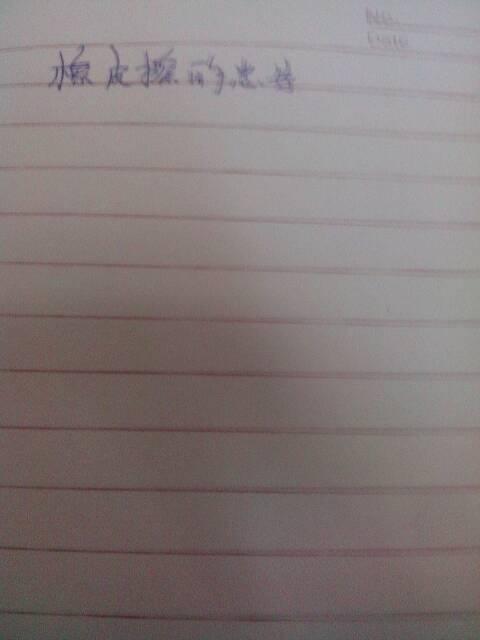 No.
Date
橡皮擦的思替